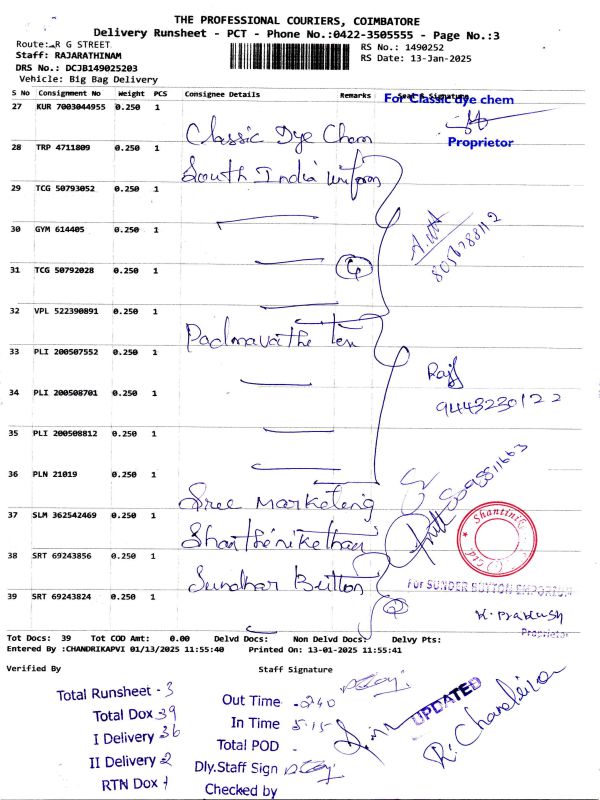 THE PROFESSIONAL COURIERS, COIMBATORE
Delivery Runsheet - PCT - Phone No.:0422-3505555 - Page No.:3
Route: R G STREET
RS No.: 1490252
Staff: RAJARATHINAM
RS Date: 13-Jan-2025
DRS No.: DCJB149025203
Vehicle: Big Bag Delivery
S No Consignment No Weight PCS Consignee Details Remarks Seal & Signature
For Classic dye chem
27 KUR 7003044955 0.250 1 Classic Dye Chem
Proprietor
28 TRP 4711809 0.250 1 South India uniform
29 TCG 50793052 0.250 1
30 GYM 614405 0.250 1
8056288112
31 TCG 50792028 0.250 1
32 VPL 522390891 0.250 1 Padmavathe Tex
33 PLI 200507552 0.250 1
Raj
34 PLI 200508701 0.250 1
9443230122
35 PLI 200508812 0.250 1
36 PLN 21019 0.250 1 Sree marketing
37 SLM 362542469 0.250 1 Shanthinikethan
Shantinik
38 SRT 69243856 0.250 1 Sundhar Button
For SUNDER BUTTON EMPORIUM
39 SRT 69243824 0.250 1
K. Prakash
Proprietor
Tot Docs: 39 Tot COD Amt: 0.00 Delvd Docs: Non Delvd Docs: Delvy Pts:
Entered By :CHANDRIKAPVI 01/13/2025 11:55:40 Printed On: 13-01-2025 11:55:41
Verified By Staff Signature
Total Runsheet - 3
Total Dox 39
I Delivery 36
II Delivery 2
RTN Dox 1
Out Time - 240
In Time 5.15
Total POD -
Dly.Staff Sign
Checked by
UPDATED